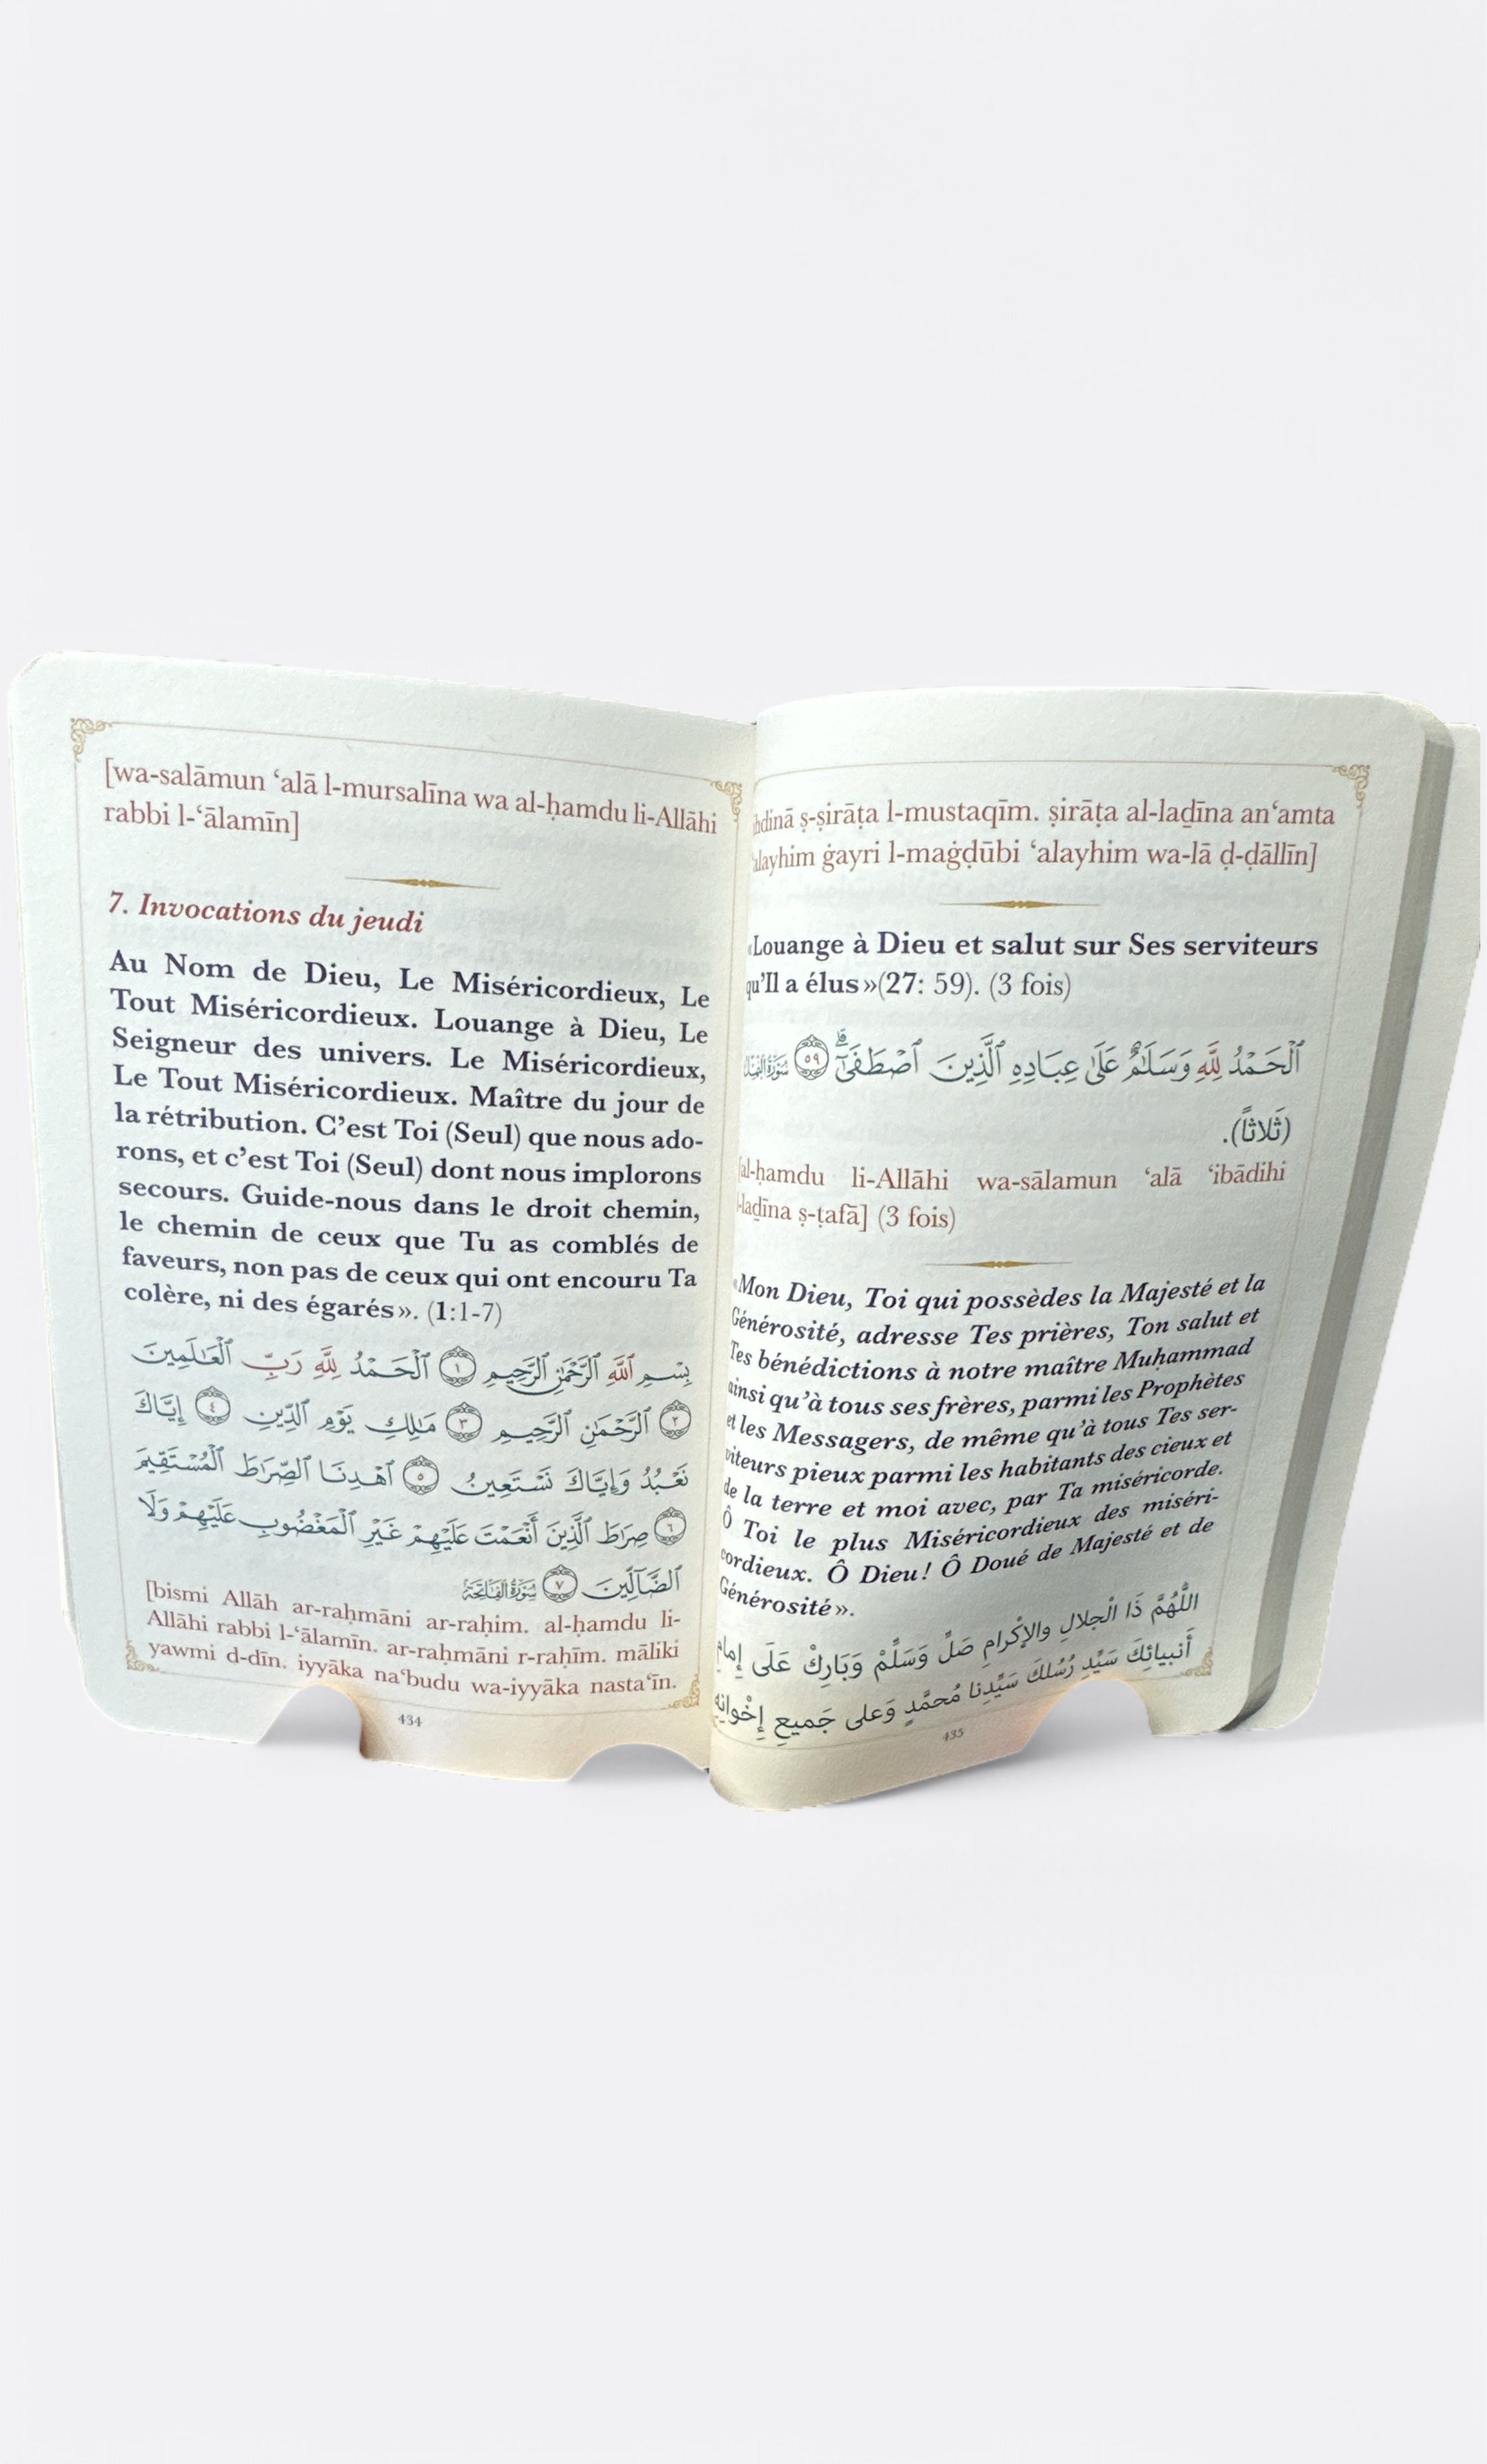 [wa-salāmun ‘alā l-mursalīna wa al-ḥamdu li-Allāhi
rabbi l-‘ālamīn]
7. Invocations du jeudi
Au Nom de Dieu, Le Miséricordieux, Le
Tout Miséricordieux. Louange à Dieu, Le
Seigneur des univers. Le Miséricordieux,
Le Tout Miséricordieux. Maître du jour de
la rétribution. C’est Toi (Seul) que nous ado-
rons, et c’est Toi (Seul) dont nous implorons
secours. Guide-nous dans le droit chemin,
le chemin de ceux que Tu as comblés de
faveurs, non pas de ceux qui ont encouru Ta
colère, ni des égarés». (1:1-7)
بِسْمِ ٱللَّهِ ٱلرَّحْمَٰنِ ٱلرَّحِيمِ ١ ٱلْحَمْدُ لِلَّهِ رَبِّ ٱلْعَٰلَمِينَ
٢ ٱلرَّحْمَٰنِ ٱلرَّحِيمِ ٣ مَٰلِكِ يَوْمِ ٱلدِّينِ ٤ إِيَّاكَ
نَعْبُدُ وَإِيَّاكَ نَسْتَعِينُ ٥ ٱهْدِنَا ٱلصِّرَٰطَ ٱلْمُسْتَقِيمَ
٦ صِرَٰطَ ٱلَّذِينَ أَنْعَمْتَ عَلَيْهِمْ غَيْرِ ٱلْمَغْضُوبِ عَلَيْهِمْ وَلَا
ٱلضَّآلِّينَ ٧ سُورَةُ الفَاتِحَة
[bismi Allāh ar-raḥmāni ar-raḥim. al-ḥamdu li-
Allāhi rabbi l-‘ālamīn. ar-raḥmāni r-raḥīm. māliki
yawmi d-dīn. iyyāka na‘budu wa-iyyāka nasta‘īn.
434
ṣ-ṣirāṭa l-mustaqīm. ṣirāṭa al-laḏīna an‘amta
‘alayhim ġayri l-maġḍūbi ‘alayhim wa-lā ḍ-ḍāllīn]
«Louange à Dieu et salut sur Ses serviteurs
qu’Il a élus»(27: 59). (3 fois)
ٱلْحَمْدُ لِلَّهِ وَسَلَٰمٌ عَلَىٰ عِبَادِهِ ٱلَّذِينَ ٱصْطَفَىٰٓ ۗ ٥٩
(ثَلاثاً).
[al-ḥamdu li-Allāhi wa-sālamun ‘alā ‘ibādihi
l-laḏīna ṣ-ṭafā] (3 fois)
«Mon Dieu, Toi qui possèdes la Majesté et la
Générosité, adresse Tes prières, Ton salut et
Tes bénédictions à notre maître Muḥammad
ainsi qu’à tous ses frères, parmi les Prophètes
et les Messagers, de même qu’à tous Tes ser-
viteurs pieux parmi les habitants des cieux et
de la terre et moi avec, par Ta miséricorde.
Ô Toi le plus Miséricordieux des miséri-
cordieux. Ô Dieu! Ô Doué de Majesté et de
Générosité».
اللَّهُمَّ ذَا الْجلالِ والإكْرامِ صَلِّ وَسَلِّمْ وَبَارِكْ عَلَى إِمامِ
أَنبيائِكَ سَيِّدِ رُسُلكَ سَيِّدِنا مُحمَّدٍ وَعلى جَميعِ إِخْوانِهِ
435